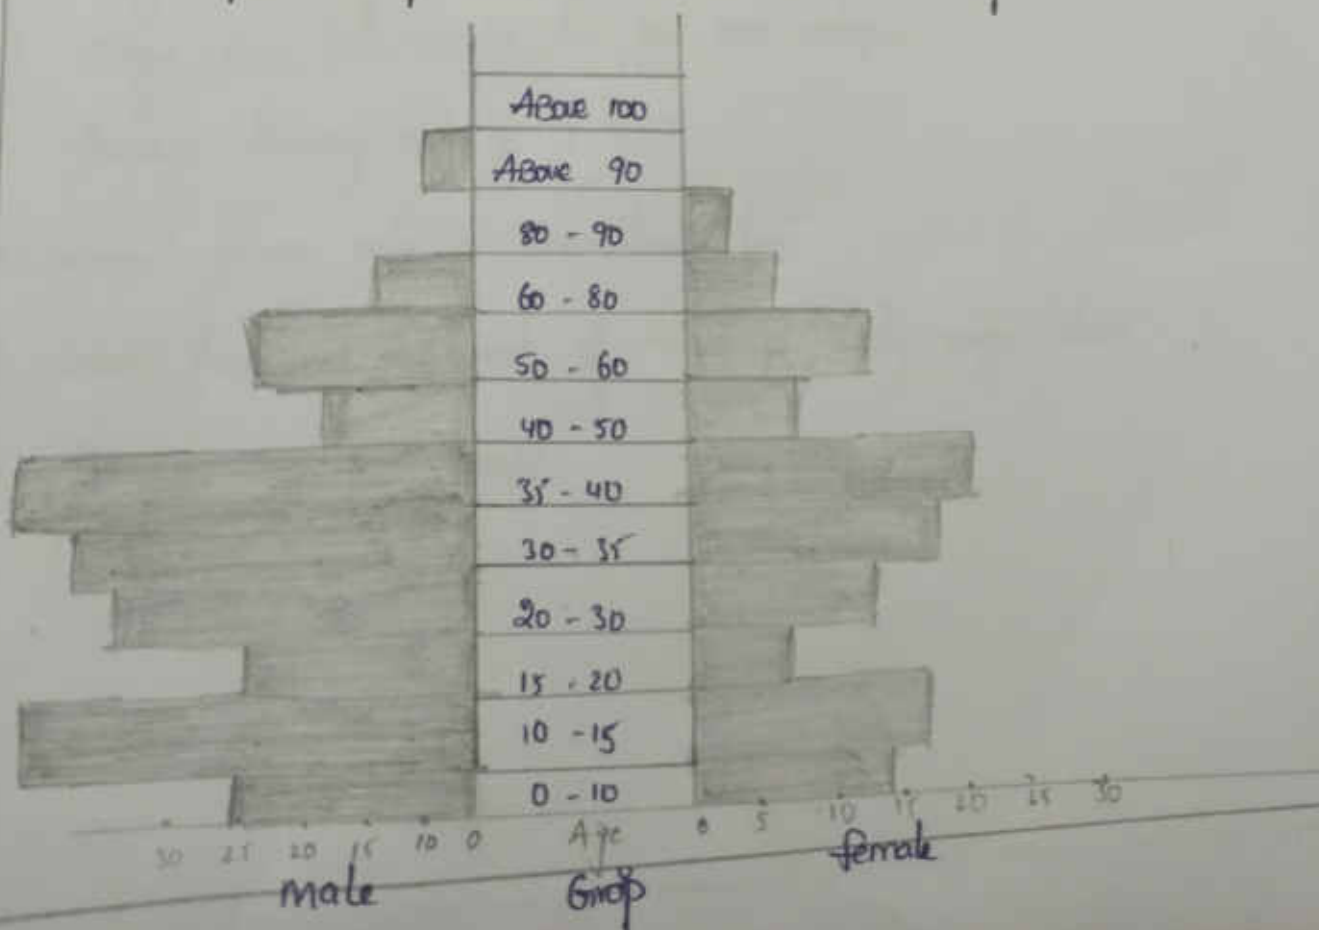 Above 100
Above 90
80 - 90
60 - 80
50 - 60
40 - 50
35 - 40
30 - 35
20 - 30
15 - 20
10 - 15
0 - 10
30 25 20 15 10 0 Age 0 5 10 15 20 25 30
male Grop female